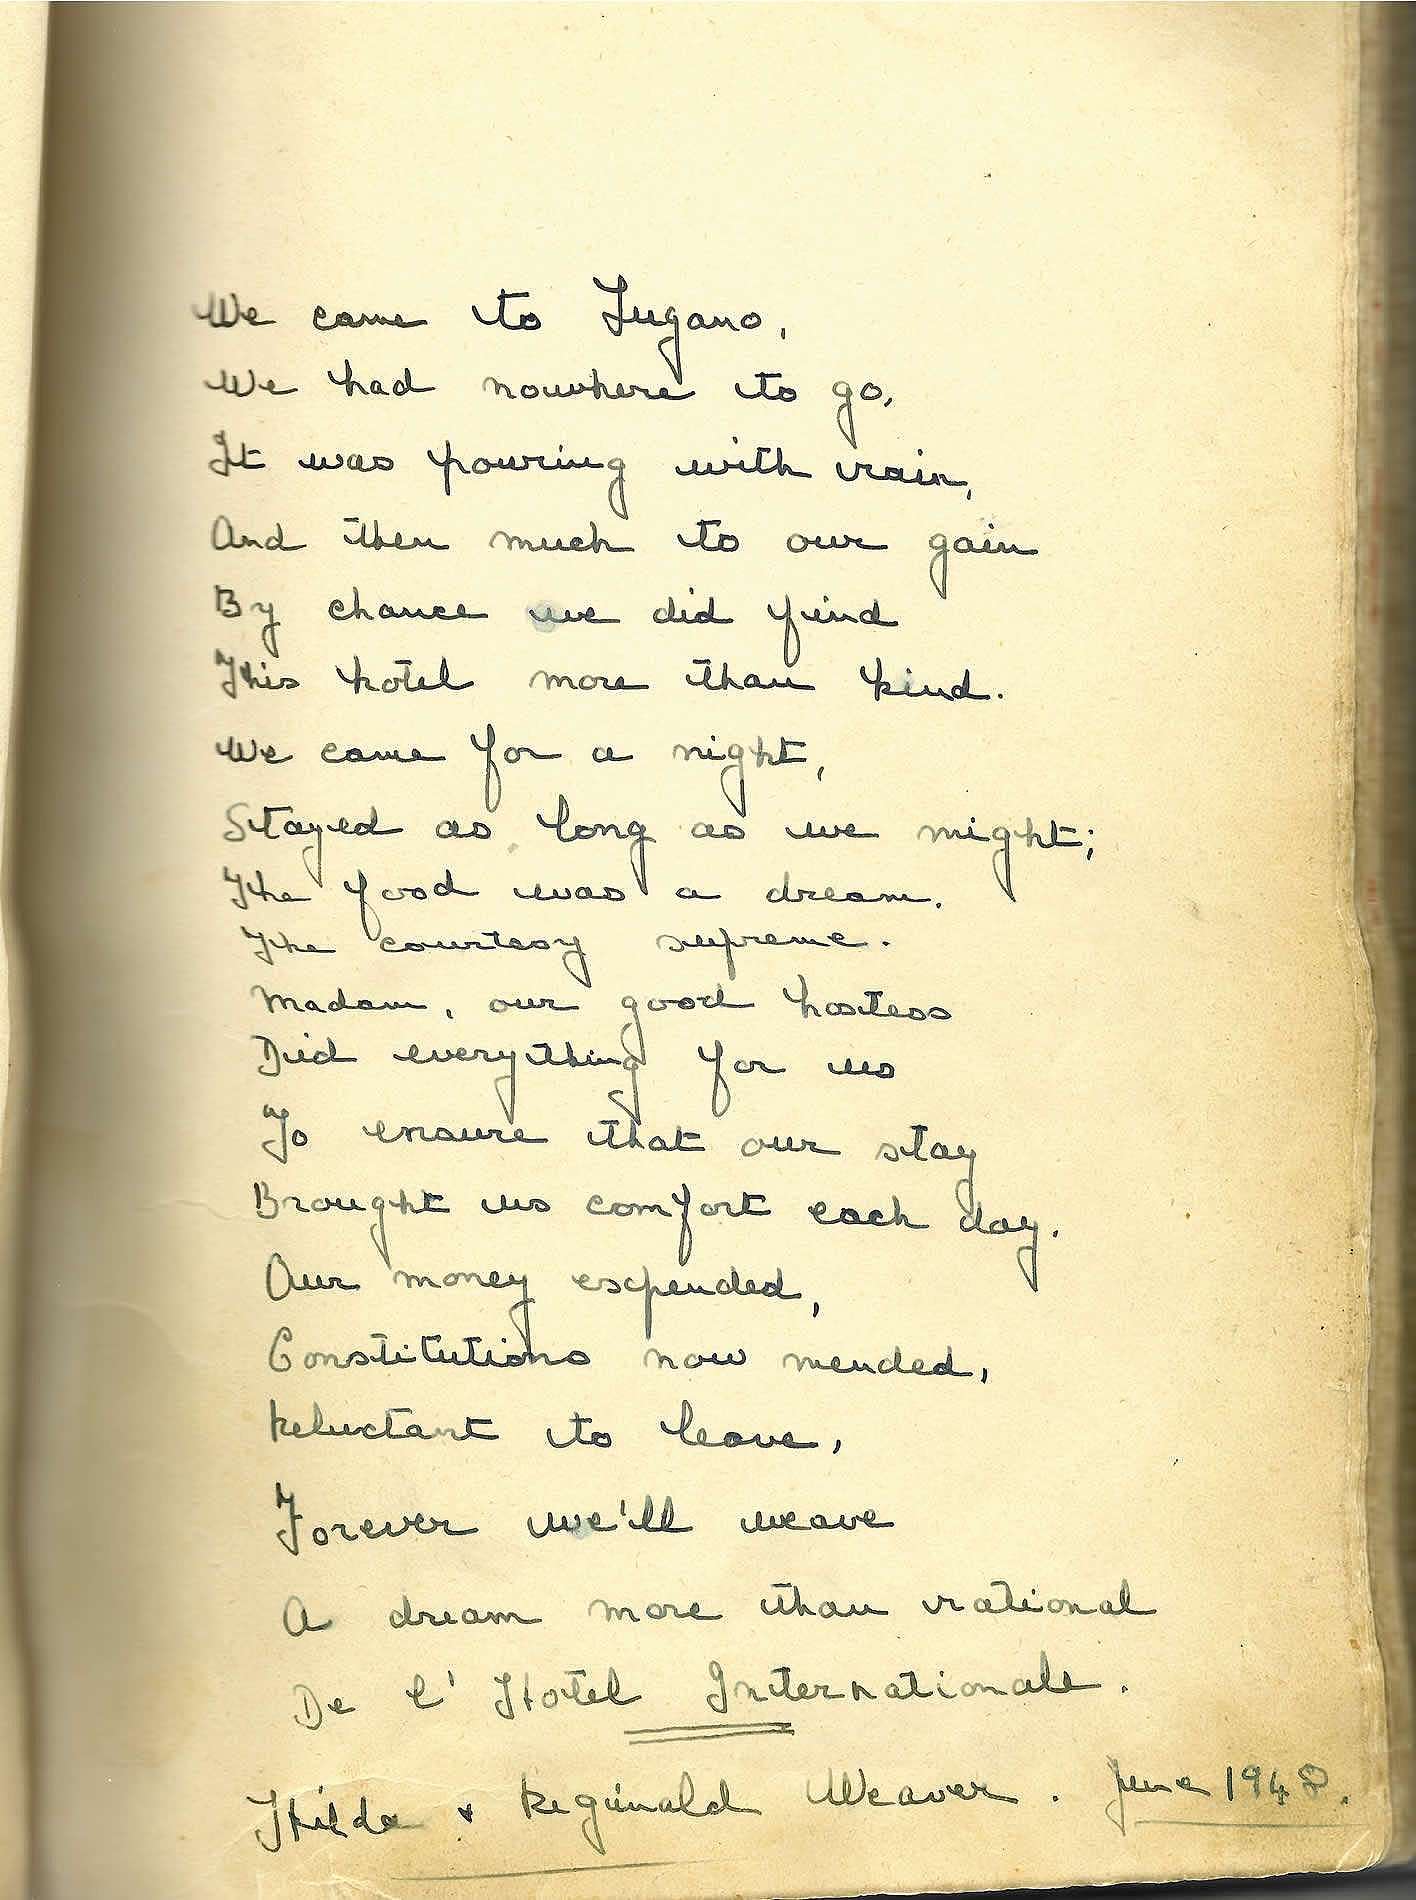 We came to Lugano,
We had nowhere to go,
It was pouring with rain,
And then much to our gain
By chance we did find
This hotel more than kind.
We came for a night,
Stayed as long as we might;
The food was a dream.
The courtesy supreme.
Madam, our good hostess
Did everything for us
To ensure that our stay
Brought us comfort each day.
Our money expended,
Constitutions now mended,
Reluctant to leave,
Forever we'll weave
A dream more than rational
De l'Hotel Internationale.
Hilda & Reginald Weaver. June 1948.